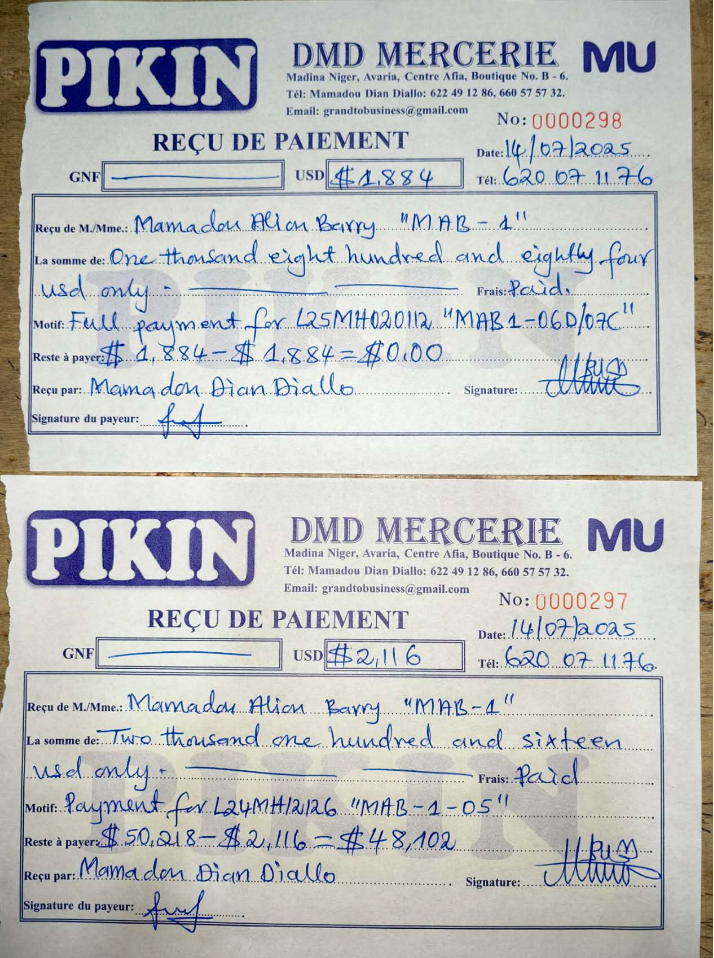 PIKIN
DMD MERCERIE MU
Madina Niger, Avaria, Centre Afia, Boutique No. B - 6.
Tél: Mamadou Dian Diallo: 622 49 12 86, 660 57 57 32.
Email: grandtobusiness@gmail.com
No: 0000298
REÇU DE PAIEMENT
Date: 14/07/2025
GNF USD $1,884 Tél: 620 07 11 76
Reçu de M./Mme.: Mamadou Aliou Barry "MAB-1"
La somme de: One thousand eight hundred and eightly four
usd only - Frais: Paid.
Motif: Full payment for L25MH020112 "MAB1-06D/07C"
Reste à payer: $1,884-$1,884=$0.00
Reçu par: Mamadou Dian Diallo Signature:
Signature du payeur:
PIKIN
DMD MERCERIE MU
Madina Niger, Avaria, Centre Afia, Boutique No. B - 6.
Tél: Mamadou Dian Diallo: 622 49 12 86, 660 57 57 32.
Email: grandtobusiness@gmail.com
No: 0000297
REÇU DE PAIEMENT
Date: 14/07/2025
GNF USD $2,116 Tél: 620 07 11 76.
Reçu de M./Mme.: Mamadou Aliou Barry "MAB-1"
La somme de: Two thousand one hundred and sixteen
usd only - Frais: Paid
Motif: Payment for L24MH12126 "MAB-1-05"
Reste à payer: $50,218-$2,116=$48,102
Reçu par: Mamadou Dian Diallo Signature:
Signature du payeur: